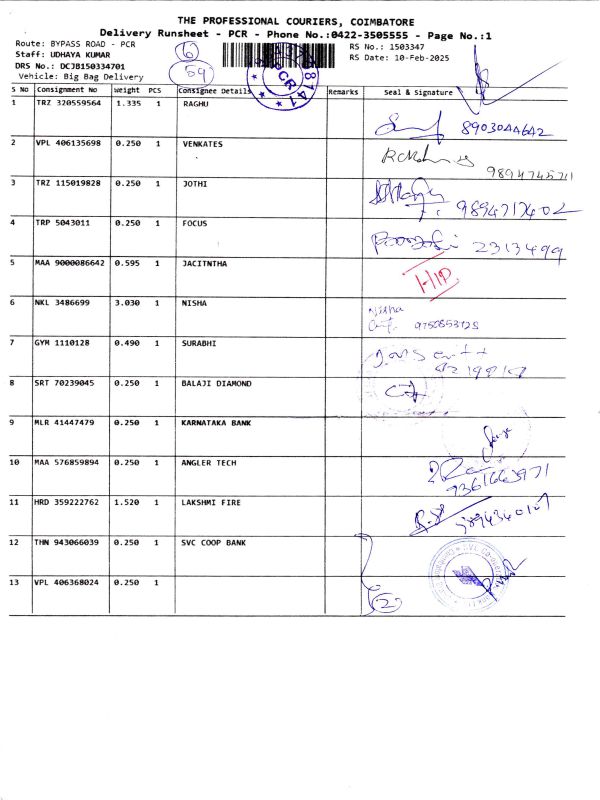 THE PROFESSIONAL COURIERS, COIMBATORE
Delivery Runsheet - PCR - Phone No.:0422-3505555 - Page No.:1
Route: BYPASS ROAD - PCR
Staff: UDHAYA KUMAR
DRS No.: DCJB150334701
Vehicle: Big Bag Delivery
6
59
RS No.: 1503347
RS Date: 10-Feb-2025
S No Consignment No Weight PCS Consignee Details Remarks Seal & Signature
1 TRZ 320559564 1.335 1 RAGHU
8903044642
2 VPL 406135698 0.250 1 VENKATES
9894745711
3 TRZ 115019828 0.250 1 JOTHI
9894717402
4 TRP 5043011 0.250 1 FOCUS
2313499
5 MAA 9000086642 0.595 1 JACITNTHA
6 NKL 3486699 3.030 1 NISHA
Nisha
7 GYM 1110128 0.490 1 SURABHI
8 SRT 70239045 0.250 1 BALAJI DIAMOND
9 MLR 41447479 0.250 1 KARNATAKA BANK
10 MAA 576859894 0.250 1 ANGLER TECH
11 HRD 359222762 1.520 1 LAKSHMI FIRE
12 THN 943066039 0.250 1 SVC COOP BANK
13 VPL 406368024 0.250 1
2